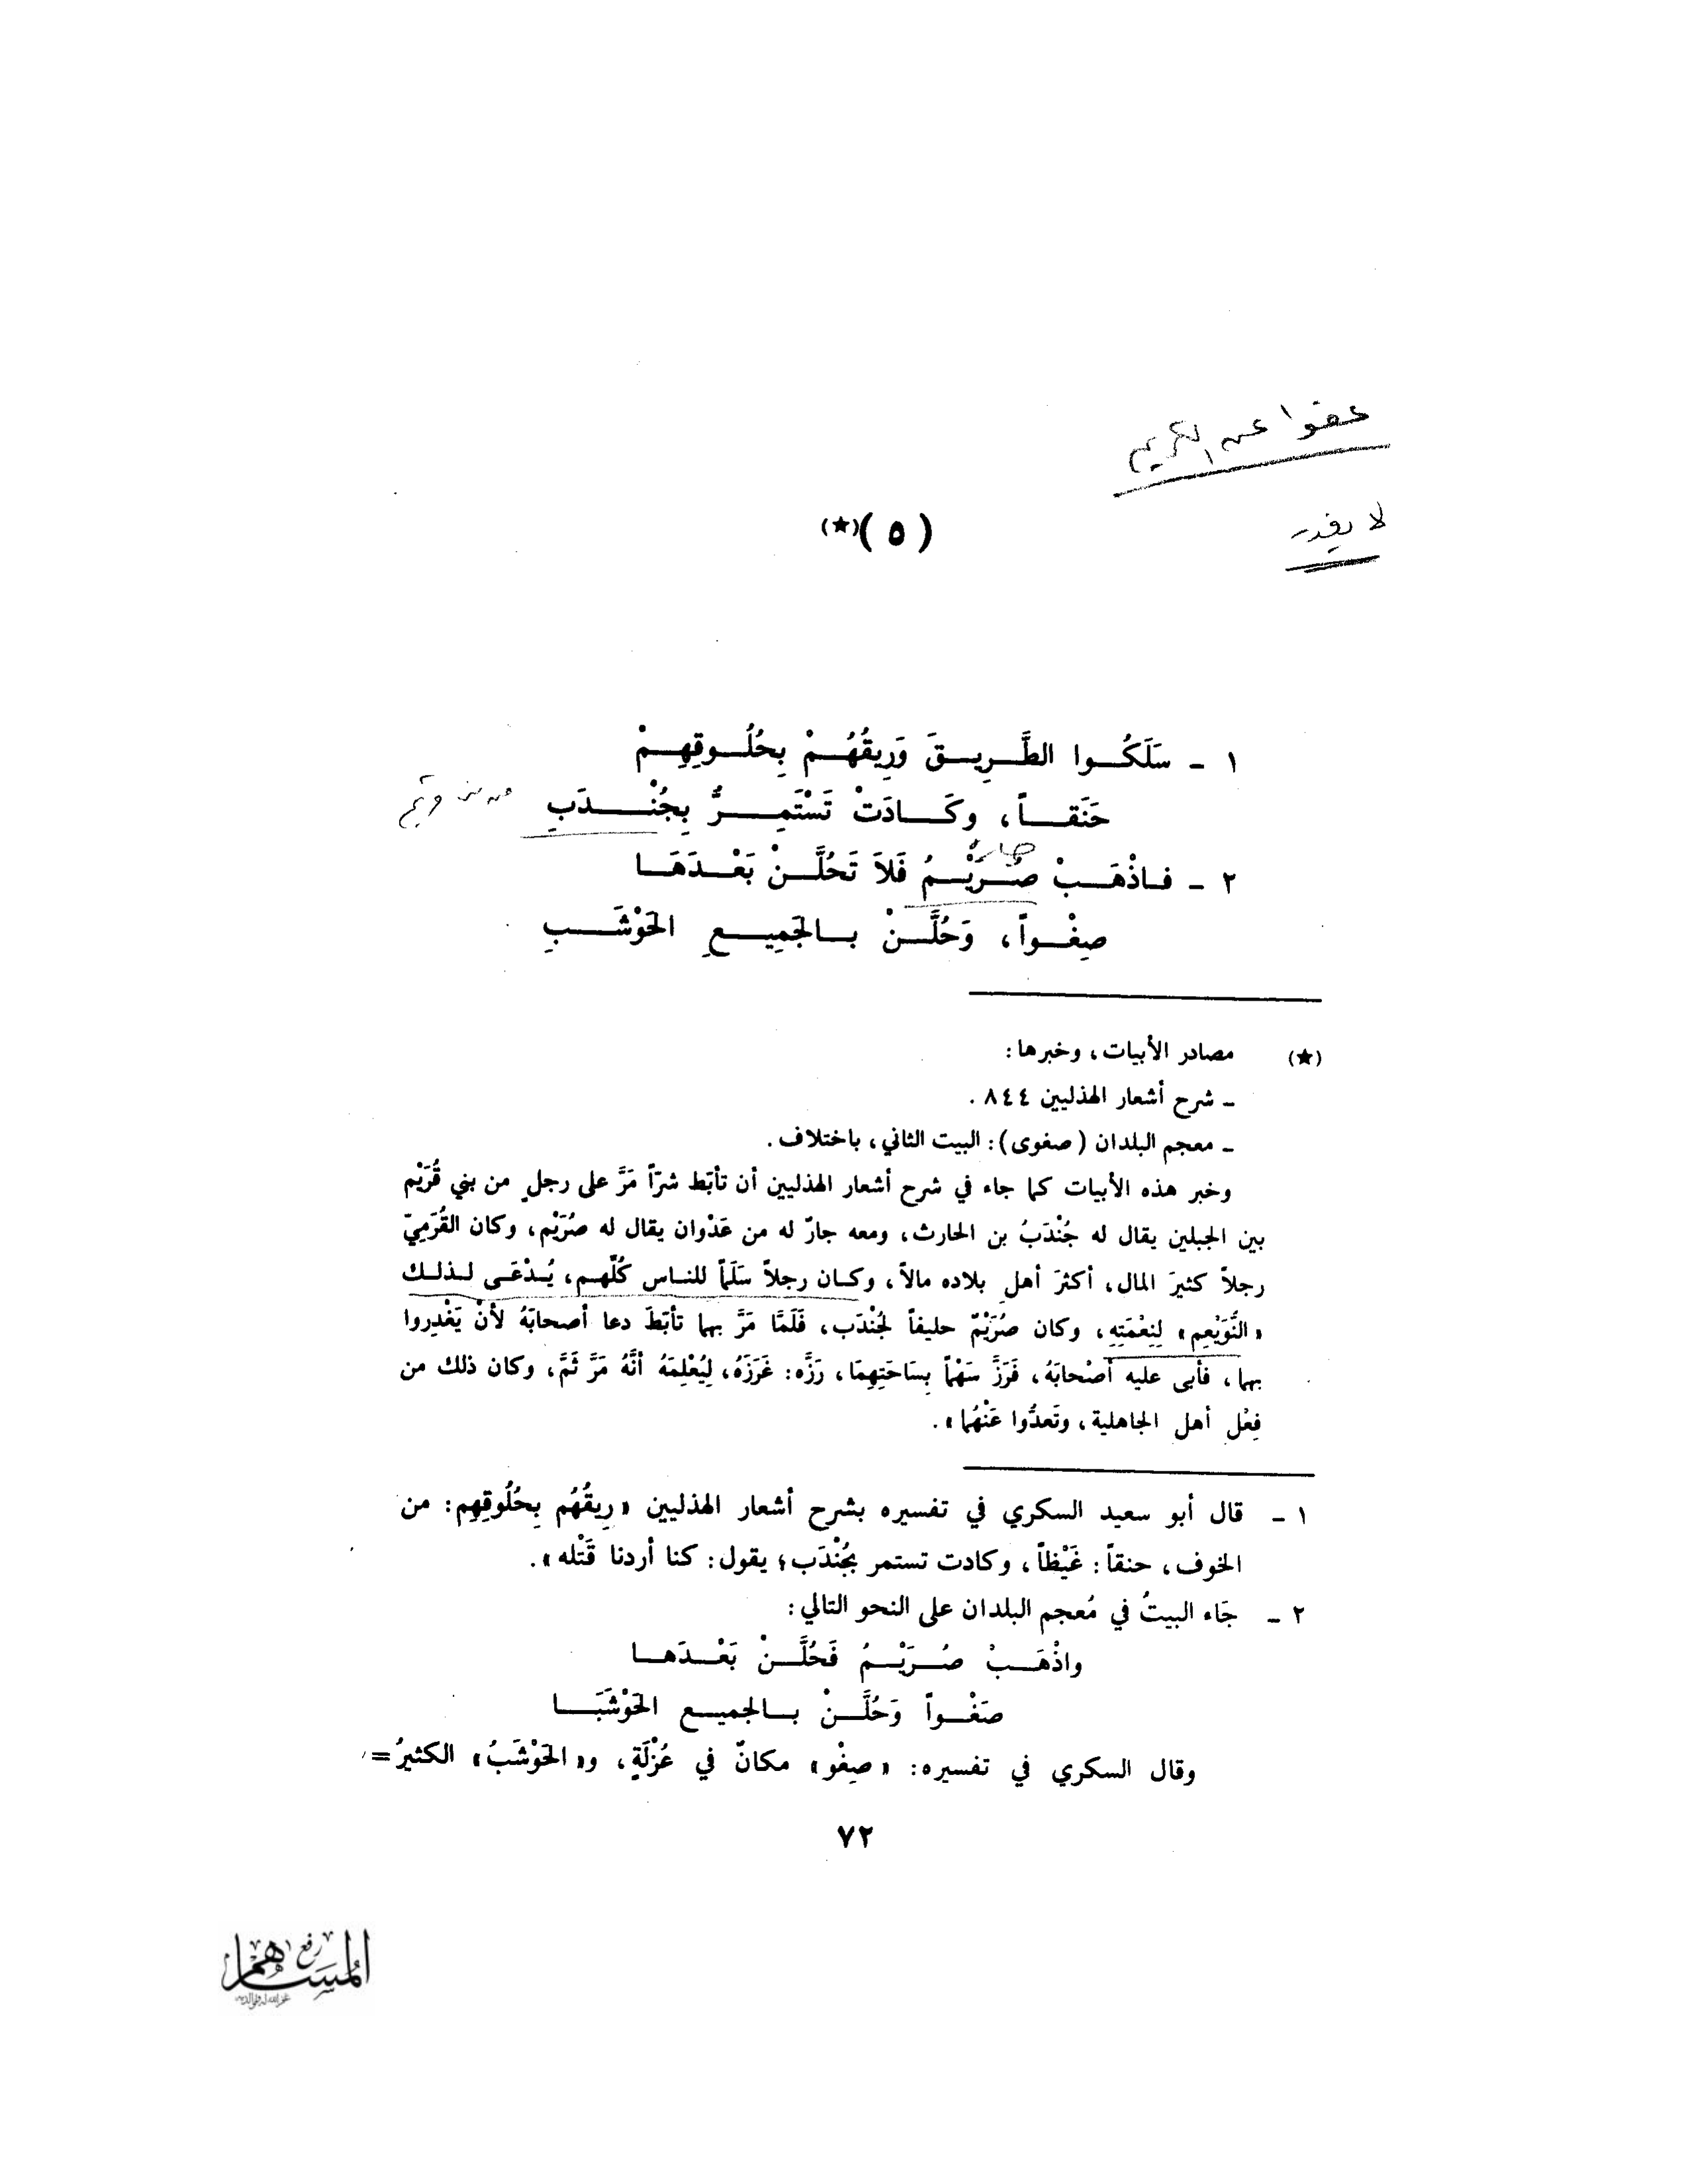 عفوا عن الكريم
لا يغدر
( ٥ )(★)
١ - سَلَكُــوا الطَّــرِيــقَ وَرِيقُهُــمْ بِحُلُــوقِهِــمْ
حَنَقــاً، وكَــادَتْ تَسْتَمِــرُّ بِجُنْــدَبِ
من بني قريم
جاره
٢ - فـاذْهَـبْ صُـرَيْـمُ فَلاَ تَحُلَّـنْ بَعْـدَهَـا
صِغْـواً، وَحُلَّـنْ بـالجَمِيـعِ الحَوْشَـبِ
(★) مصادر الأبيات، وخبرها:
- شرح أشعار الهذليين ٨٤٤.
- معجم البلدان (صغوى): البيت الثاني، باختلاف.
وخبر هذه الأبيات كما جاء في شرح أشعار الهذليين أن تأبّط شرّاً مَرَّ على رجلٍ من بني قُرَيْم
بين الجبلين يقال له جُنْدَبُ بن الحارث، ومعه جارٌ له من عَدْوان يقال له صُرَيْم، وكان القُرَمِيّ
رجلاً كثيرَ المال، أكثرَ أهلِ بلاده مالاً، وكـان رجلاً سَلَماً للنـاس كُلّهـم، يُـدْعَـى لـذلـك
«النُّوَيْعِم» لِنِعْمَتِهِ، وكان صُرَيْمٌ حليفاً لجُنْدَب، فَلَمَّا مَرَّ بهما تأبّطَ دعا أصحابَهُ لأنْ يَغْدِروا
بهما، فأبى عليه أصْحابَهُ، فَرَزَّ سَهْماً بِسَاحَتِهِمَا، رَزَّه: غَرَزَهُ، لِيُعْلِمَهُ أنَّهُ مَرَّ ثَمَّ، وكان ذلك من
فِعْل أهل الجاهلية، وتَعدُّوا عَنْهُما».
١ - قال أبو سعيد السكري في تفسيره بشرح أشعار الهذليين «رِيقُهُم بِحُلُوقِهِم: من
الخوف، حنقاً: غَيْظاً، وكادت تستمر بجُنْدَب؛ يقول: كنا أردنا قَتْله».
٢ - جَاء البيتُ في مُعجم البلدان على النحو التالي:
واذْهَـبْ صُـرَيْـمُ فَحُلَّـنْ بَعْـدَهـا
صَغْـواً وَحُلَّـنْ بـالجميـع الحَوْشَبَـا
وقال السكري في تفسيره: «صِغْو» مكانٌ في عُزْلَةٍ، و«الحَوْشَبُ» الكثيرُ=
٧٢
رفع
المساهم
غفر الله له ولوالديه